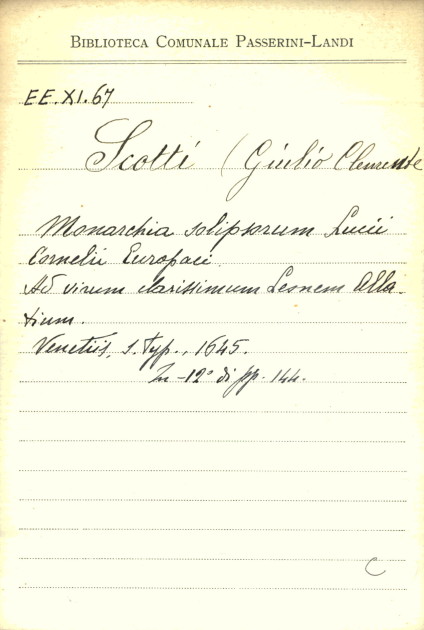 Biblioteca Comunale Passerini-Landi
EE.XI.67
Scotti (Giulio Clemente
Monarchia solipsorum Lucii
Cornelii Europaei.
Ad virum clarissimum Leonem Alla-
tium.
Venetiis, s. typ., 1645.
In -12° di pp. 144.
C